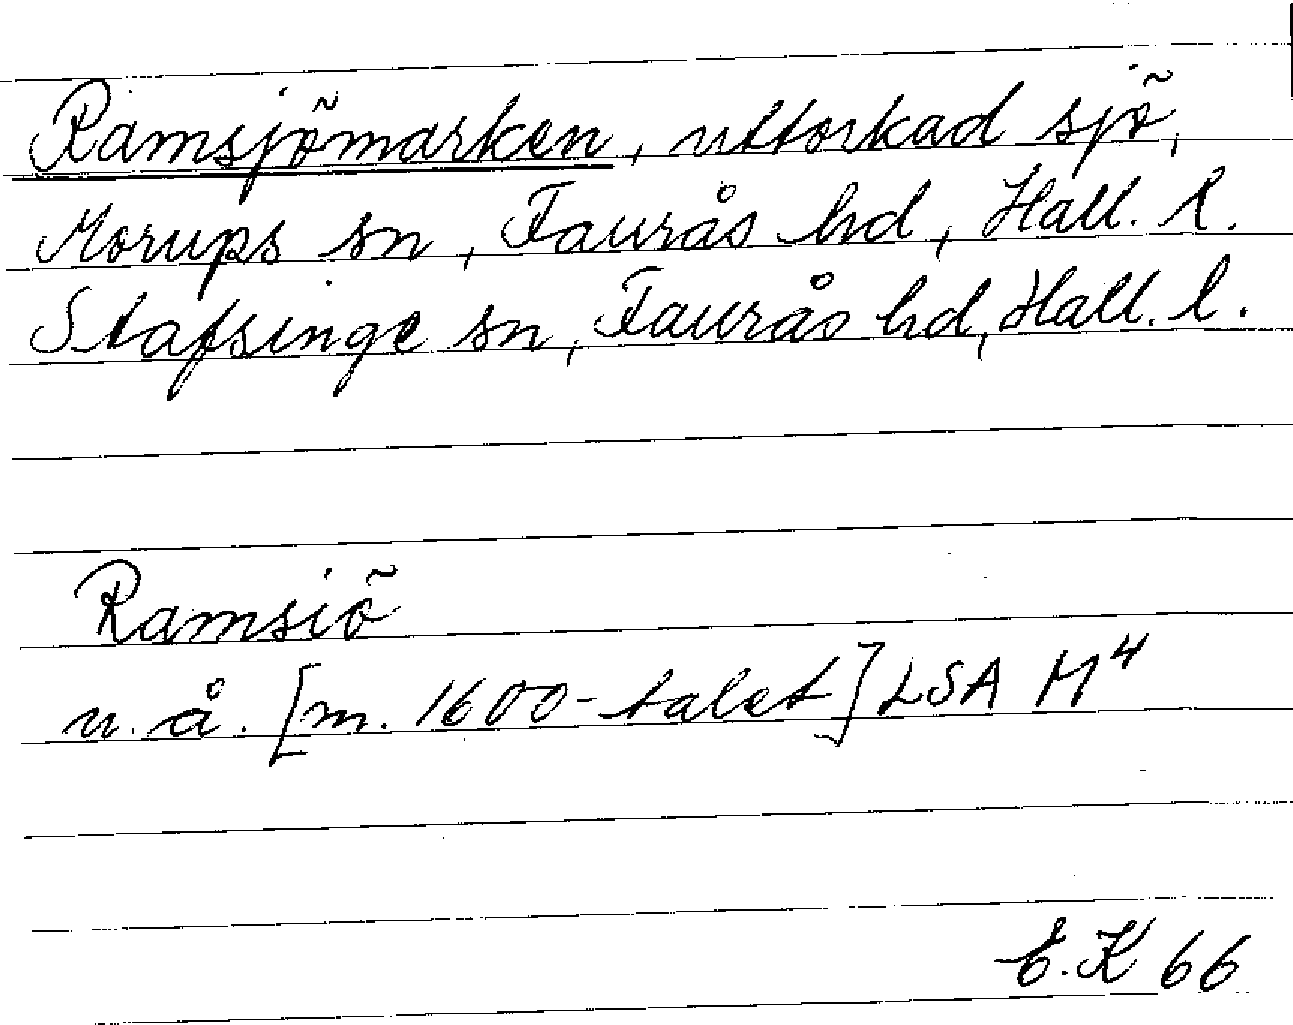 Ramsjömarken, uttorkad sjö,
Morups sn, Faurås hd, Hall. l.
Stafsinge sn, Faurås hd, Hall. l.
Ramsiö
u. å. [m. 1600-talet] LSA M⁴
E.K 66